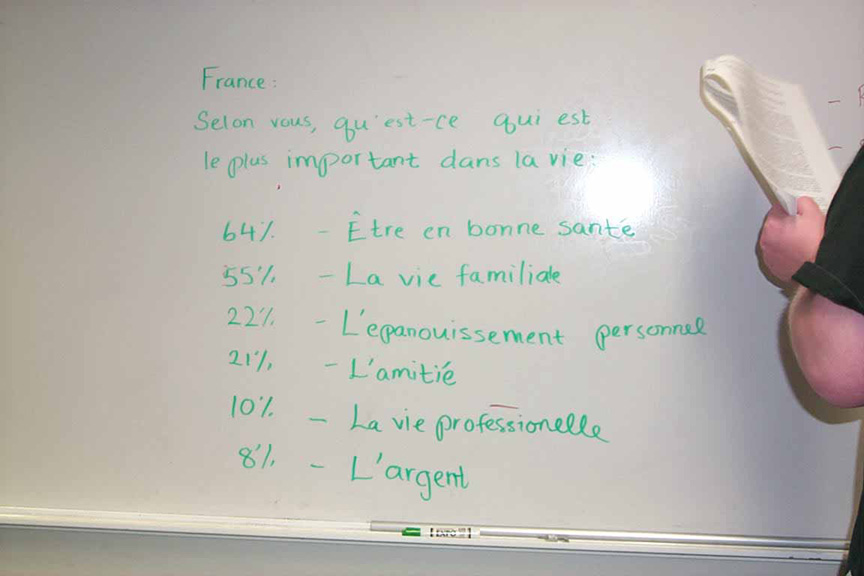 France:
Selon vous, qu'est-ce qui est
le plus important dans la vie:
64% - Être en bonne santé
55% - La vie familiale
22% - L'epanouissement personnel
21% - L'amitié
10% - La vie professionelle
8% - L'argent
EXPO